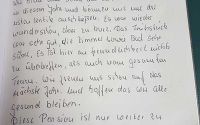 in diesem Jahr und können uns
Es war wieder
wunderschön, aber zu kurz. Das Frühstück
war sehr gut, die Zimmer sowie Bad sehr
sauber. Es ist hier an Freundlichkeit nichts
zu überbieten, als auch vom gesamten
Team. Wir freuen uns schon auf das
nächste Jahr und hoffen das wir alle
gesund bleiben.
Diese Pension ist nur weiter zu